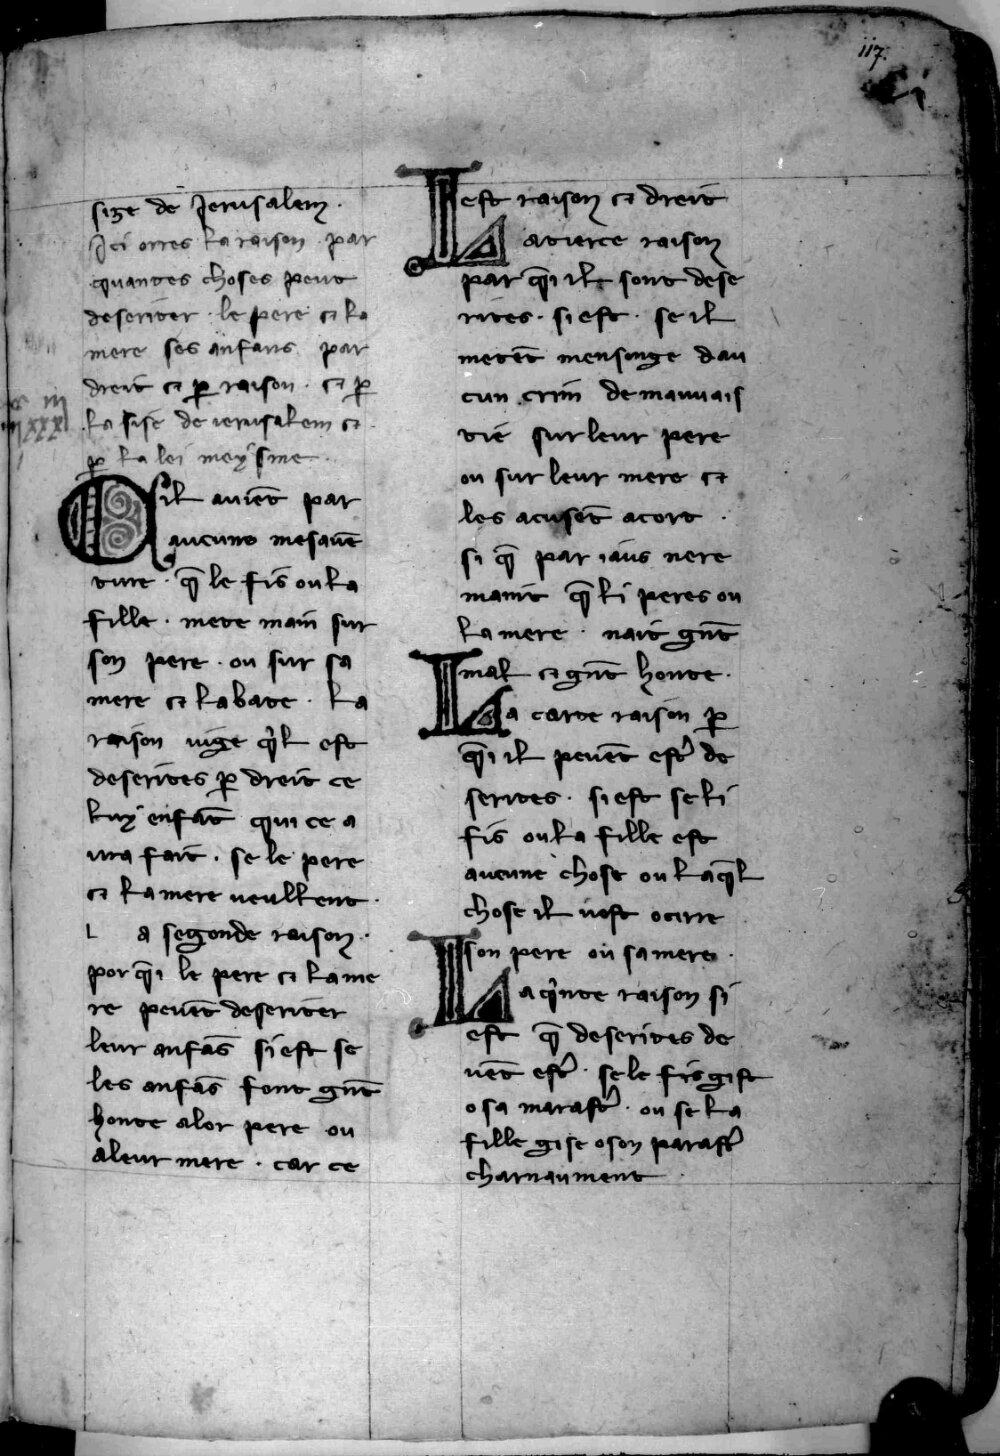 117.
size de Jerusalem.
Ici orres la raison par
quantes choses peut
deseriter. le pere ⁊ la
mere ses anfans par
dreit ⁊ p̲ raison. ⁊ p̲
la sise de ierusalem ⁊
p̲ la lei meysme.
Sil auiēt par
aucune mesauē
ture. q̄ le fis ou la
fille. mete main sur
son pere. ou sur sa
mere ⁊ la bate. la
raison iuge q̓l est
deserites p̲ dreit ce
luy enfāt qui ce a
ura fait. se le pere
⁊ la mere ueullent.
L a segonde raison.
por q̄i le pere ⁊ la me
re peuēt deseriter
leur anfās si est se
les anfās font gn̄t
honte a lor pere ou
a leur mere. car ce
est raison ⁊ dreit
La tierce raison
par q̄i il sont dese
rites. si est. se il
metēt mensonge dau
cun crim de mauuais
vie sur leur pere
ou sur leur mere ⁊
les acusēt a cort.
si q̄ par iaus nere
manit q̄ li peres ou
la mere. nait gn̄t
mal ⁊ gn̄t honte.
La carte raison p̲
q̄i il peuēt estr̄ de
serites. si est se li
fis ou la fille est
aucune chose ou laq̄l
chose il uost ocirre
son pere ou sa mere.
La q̓nte raison si
est q̄ deserites de
uēt estr̄. se le fis gist
o sa marastr̄. ou se la
fille gise o son parastr̄
charnaument